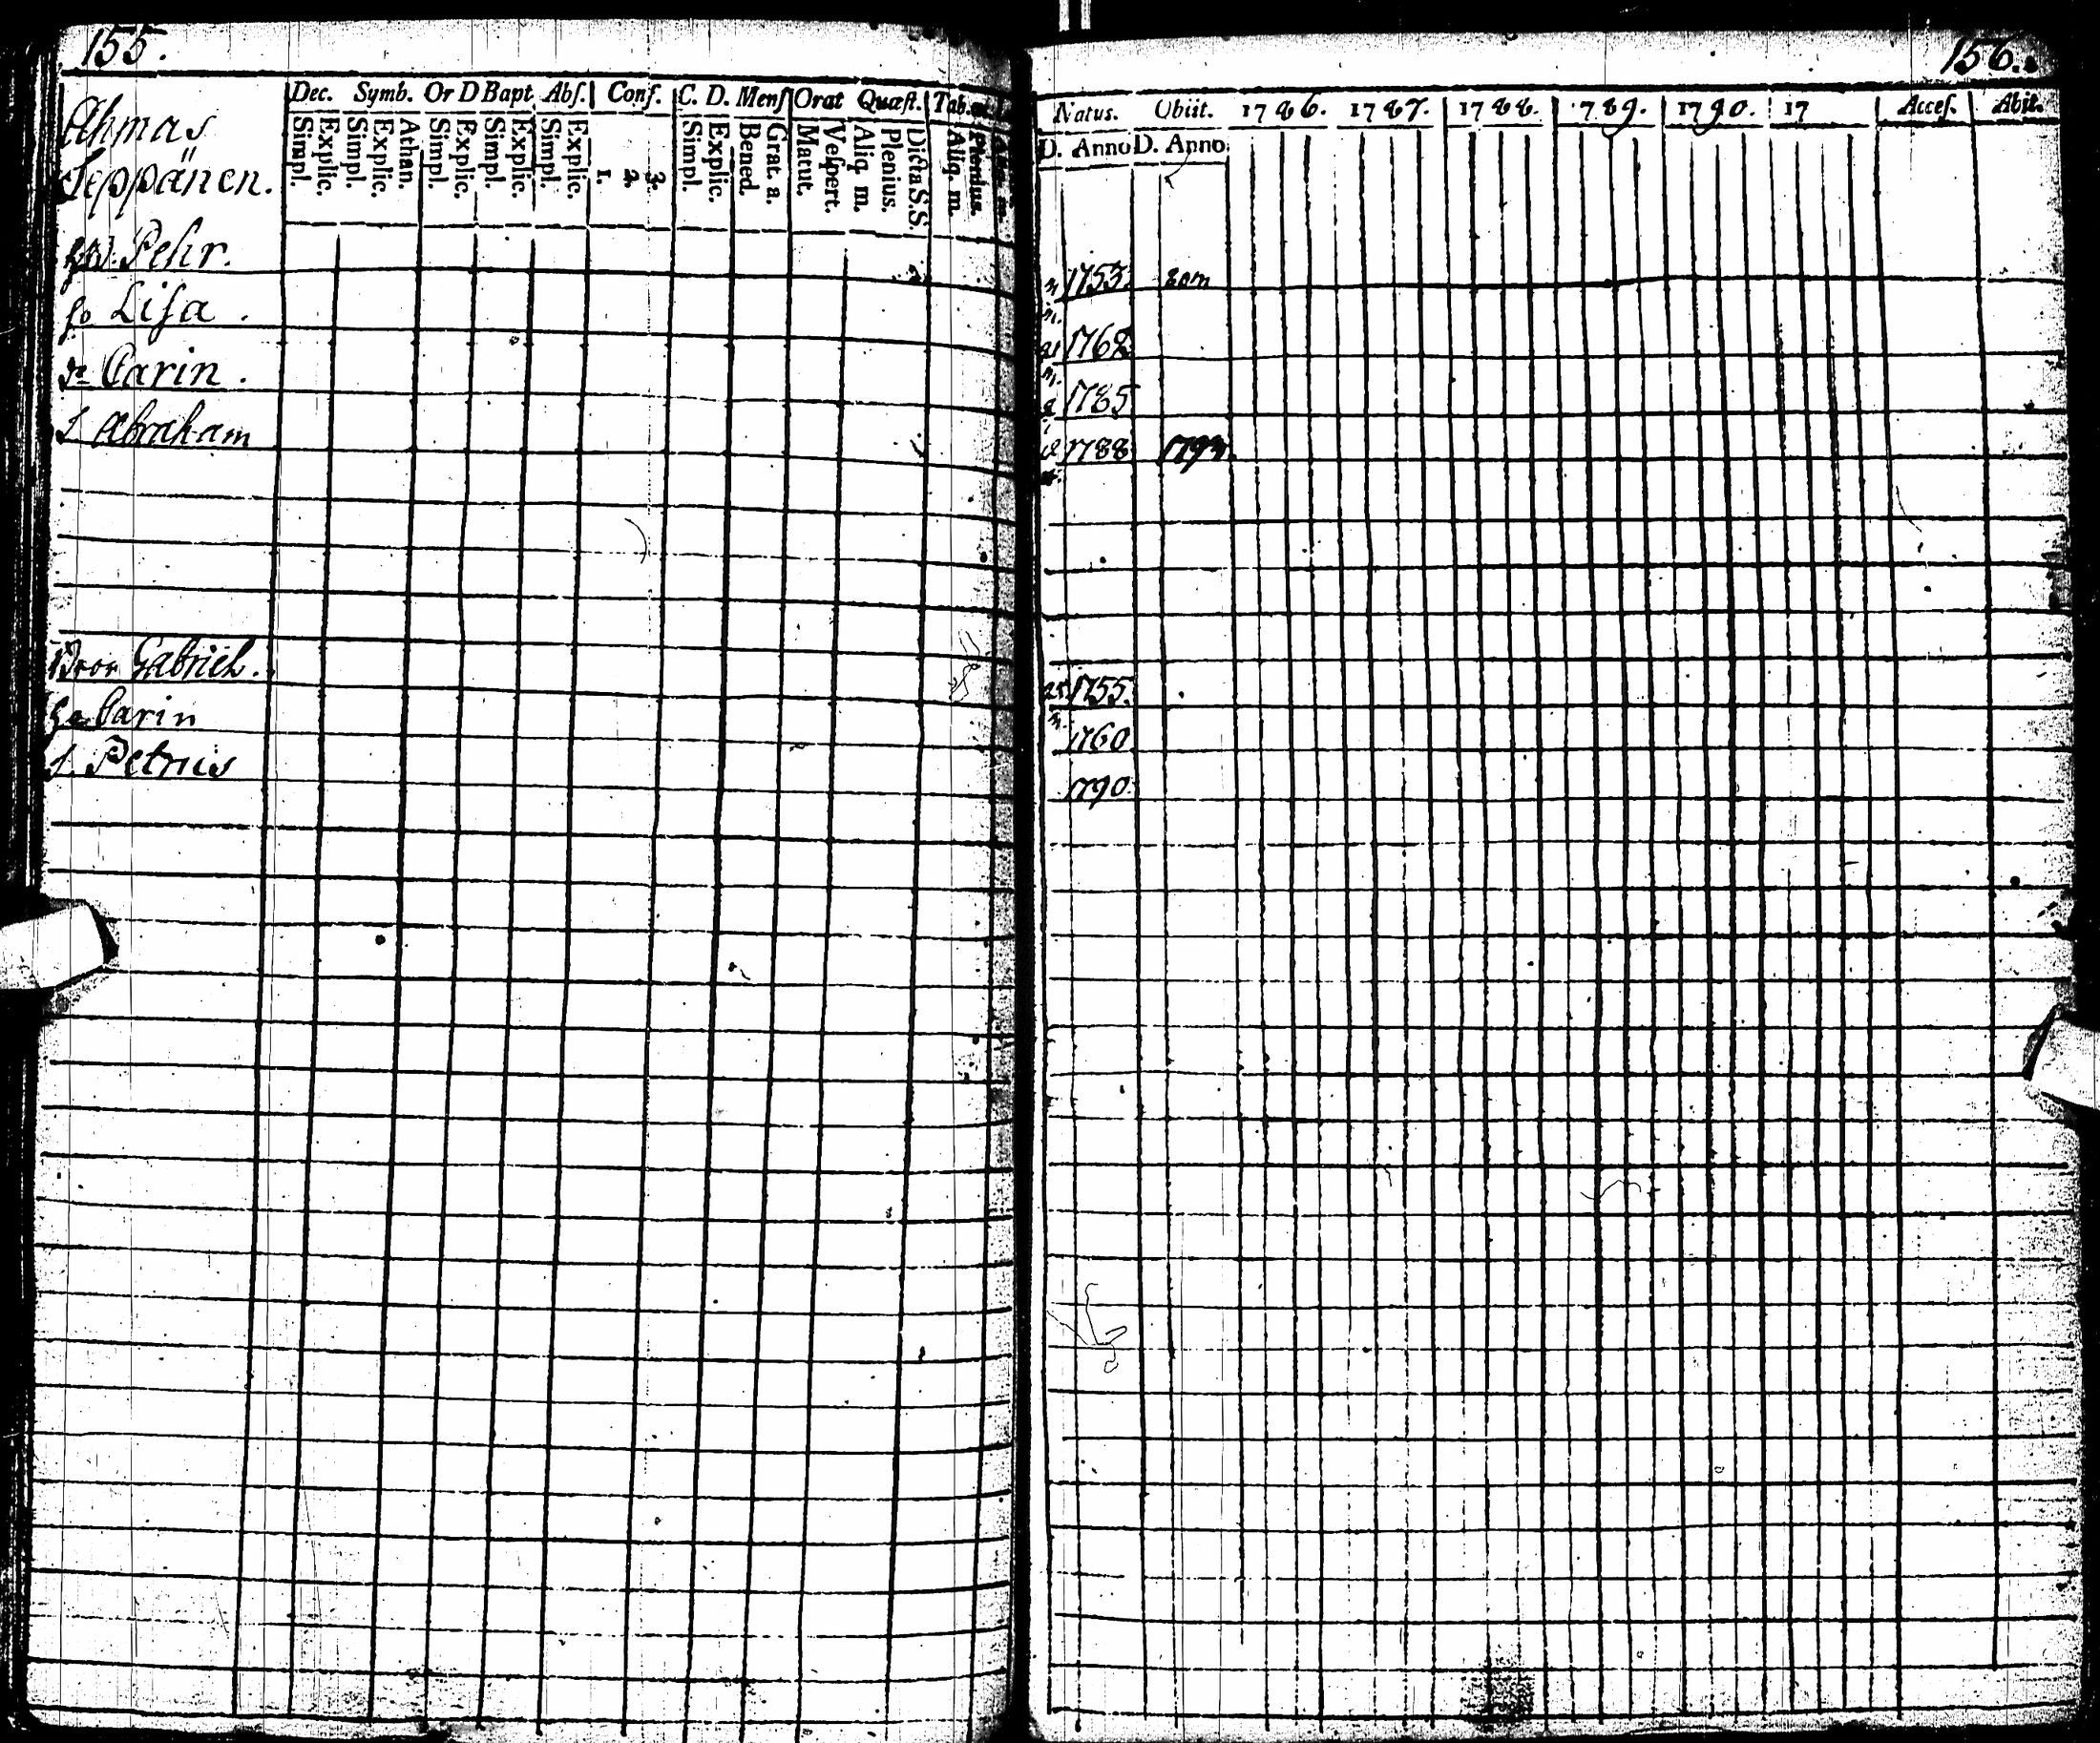 155.
Dec. Symb. Or D Bapt Abſ. Conf. C. D. Menſ Orat Quæſt. Tab.
Simpl. Explic. Simpl. Explic. Athan. Simpl. Explic. Simpl. Explic. Simpl. Explic. 1. 2. 3. Simpl. Explic. Bened. Grat. a. Matut. Veſpert. Aliq. m. Plenius. Dicta S.S. Aliq. m. Plenius.
Ahmas
Seppänen.
Pehr.
Liſa.
Carin.
S Abraham
Bror Gabriel.
Carin
S. Petrus
156.
Natus. Obiit. 1786. 1787. 1788. 1789. 1790. 17 Acceſ. Abit.
D. Anno D. Anno
1753.
1762
1785
1788
1755.
1760
1790.